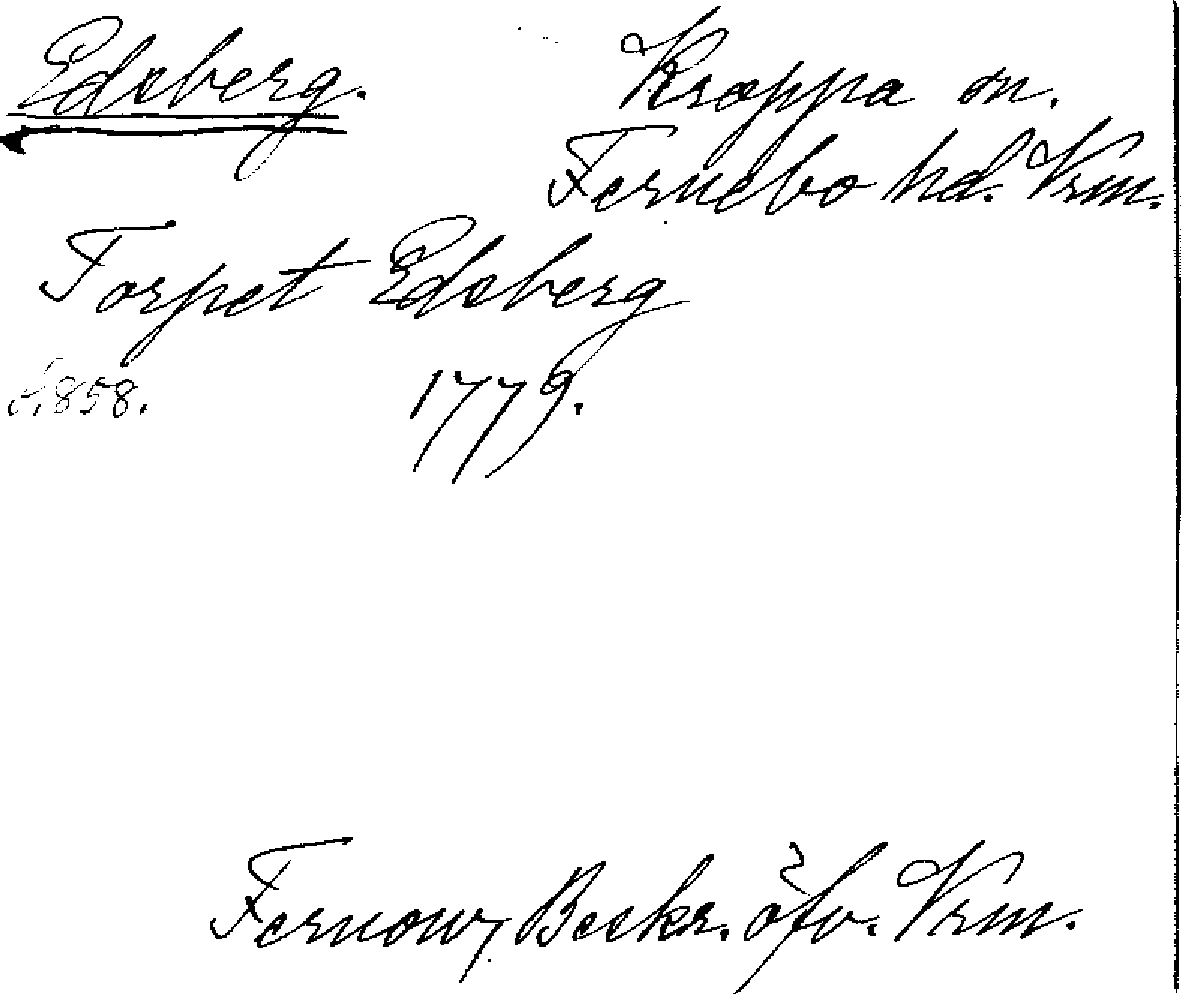 Edsberg.
Kroppa sn.
Fernebo hd. Vrm.
Torpet Edsberg
s. 858. 1779.
Fernow, Beskr. öfv. Vrm.